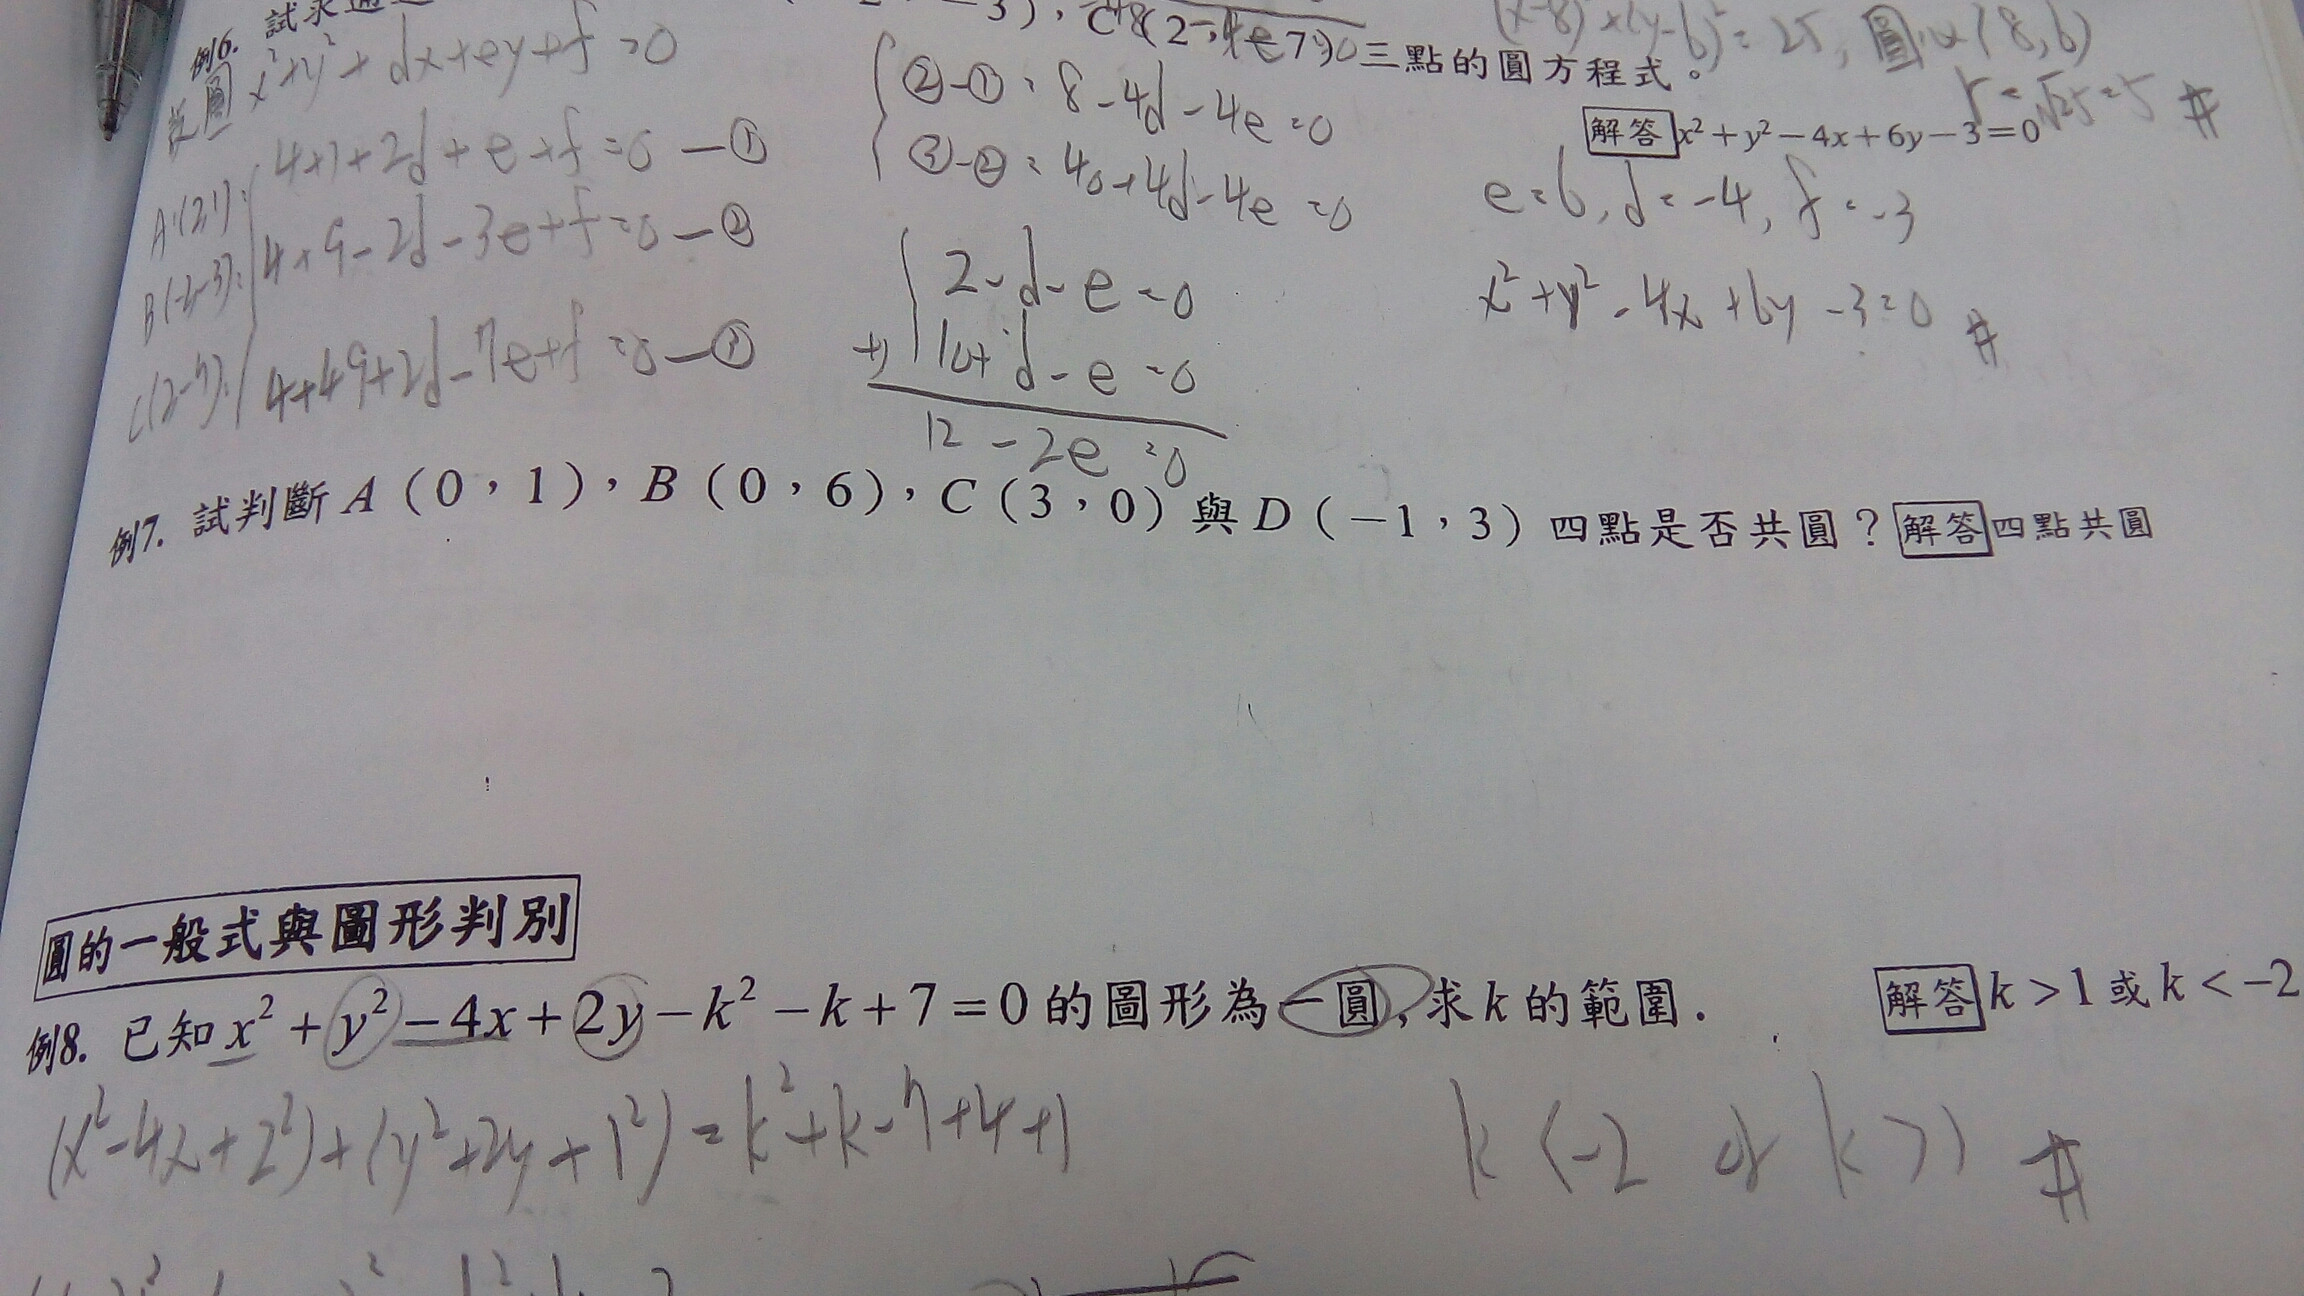 例6. 試求通過
-3), C(2, -7) 三點的圓方程式。
(x-8)²+(y-6)²=25, 圓心(8,6)
r=√25=5 #
解答 x²+y²-4x+6y-3=0
圓 x²+y²+dx+ey+f=0
A(2,1): 4+1+2d+e+f=0 —①
B(-2-3): 4+9-2d-3e+f=0 —②
C(2-7): 4+49+2d-7e+f=0 —③
②-①: 8-4d-4e=0
③-②: 40+4d-4e=0
2-d-e=0
+) 10+d-e=0
12-2e=0
e=6, d=-4, f=-3
x²+y²-4x+6y-3=0 #
例7. 試判斷 A(0,1),B(0,6),C(3,0)與 D(-1,3)四點是否共圓? 解答 四點共圓
圓的一般式與圖形判別
例8. 已知 x²+y²-4x+2y-k²-k+7=0 的圖形為一圓,求 k 的範圍. 解答 k>1 或 k<-2
(x²-4x+2²)+(y²+2y+1²)=k²+k-7+4+1
k<-2 or k>1 #